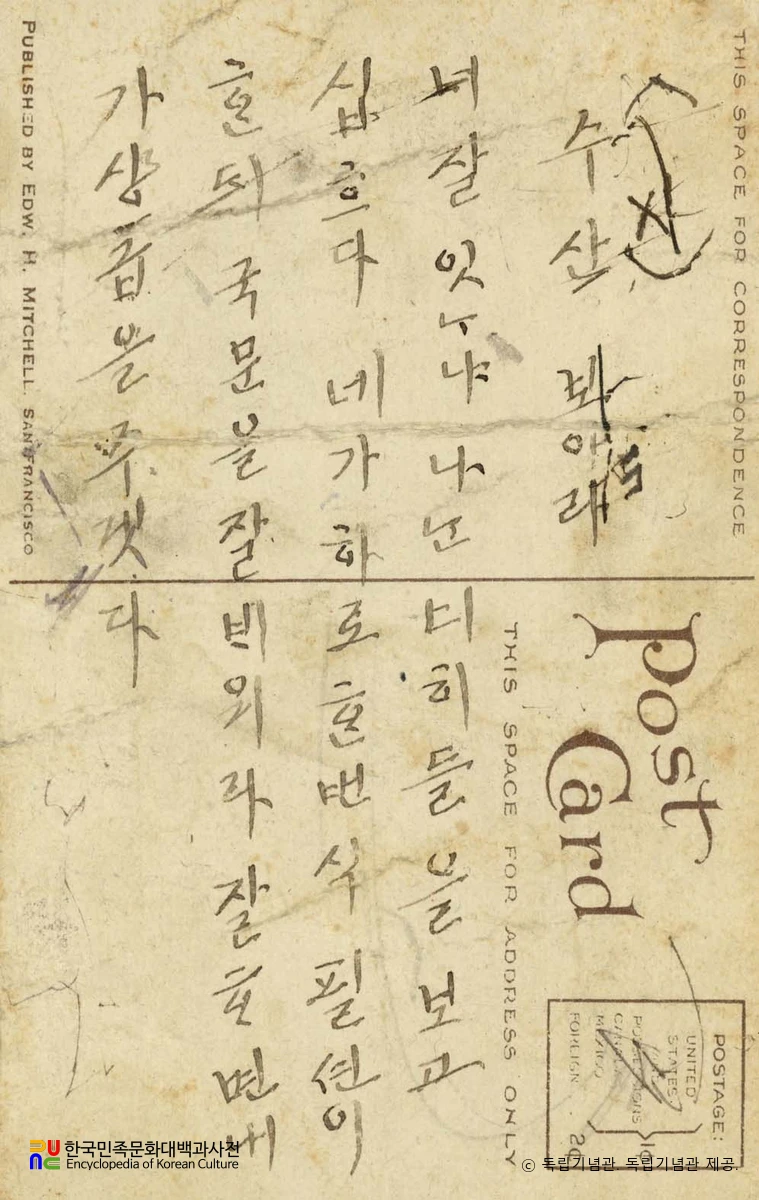 수산 봐아래
너 잘 잇ᄂᆞ냐 나ᄂᆞᆫ 너희들을 보고
십흐다 네가 하로 ᄒᆞᆫ번식 필션이
ᄒᆞᆫ 국문을 잘 ᄇᆡ외라 잘 ᄒᆞ면 내
가 상급을 주겟다
THIS SPACE FOR CORRESPONDENCE
Post Card
THIS SPACE FOR ADDRESS ONLY
POSTAGE:
UNITED
STATES
MEXICO
FOREIGN
PUBLISHED BY EDW. H. MITCHELL. SAN FRANCISCO
한국민족문화대백과사전
Encyclopedia of Korean Culture
© 독립기념관. 독립기념관 제공.